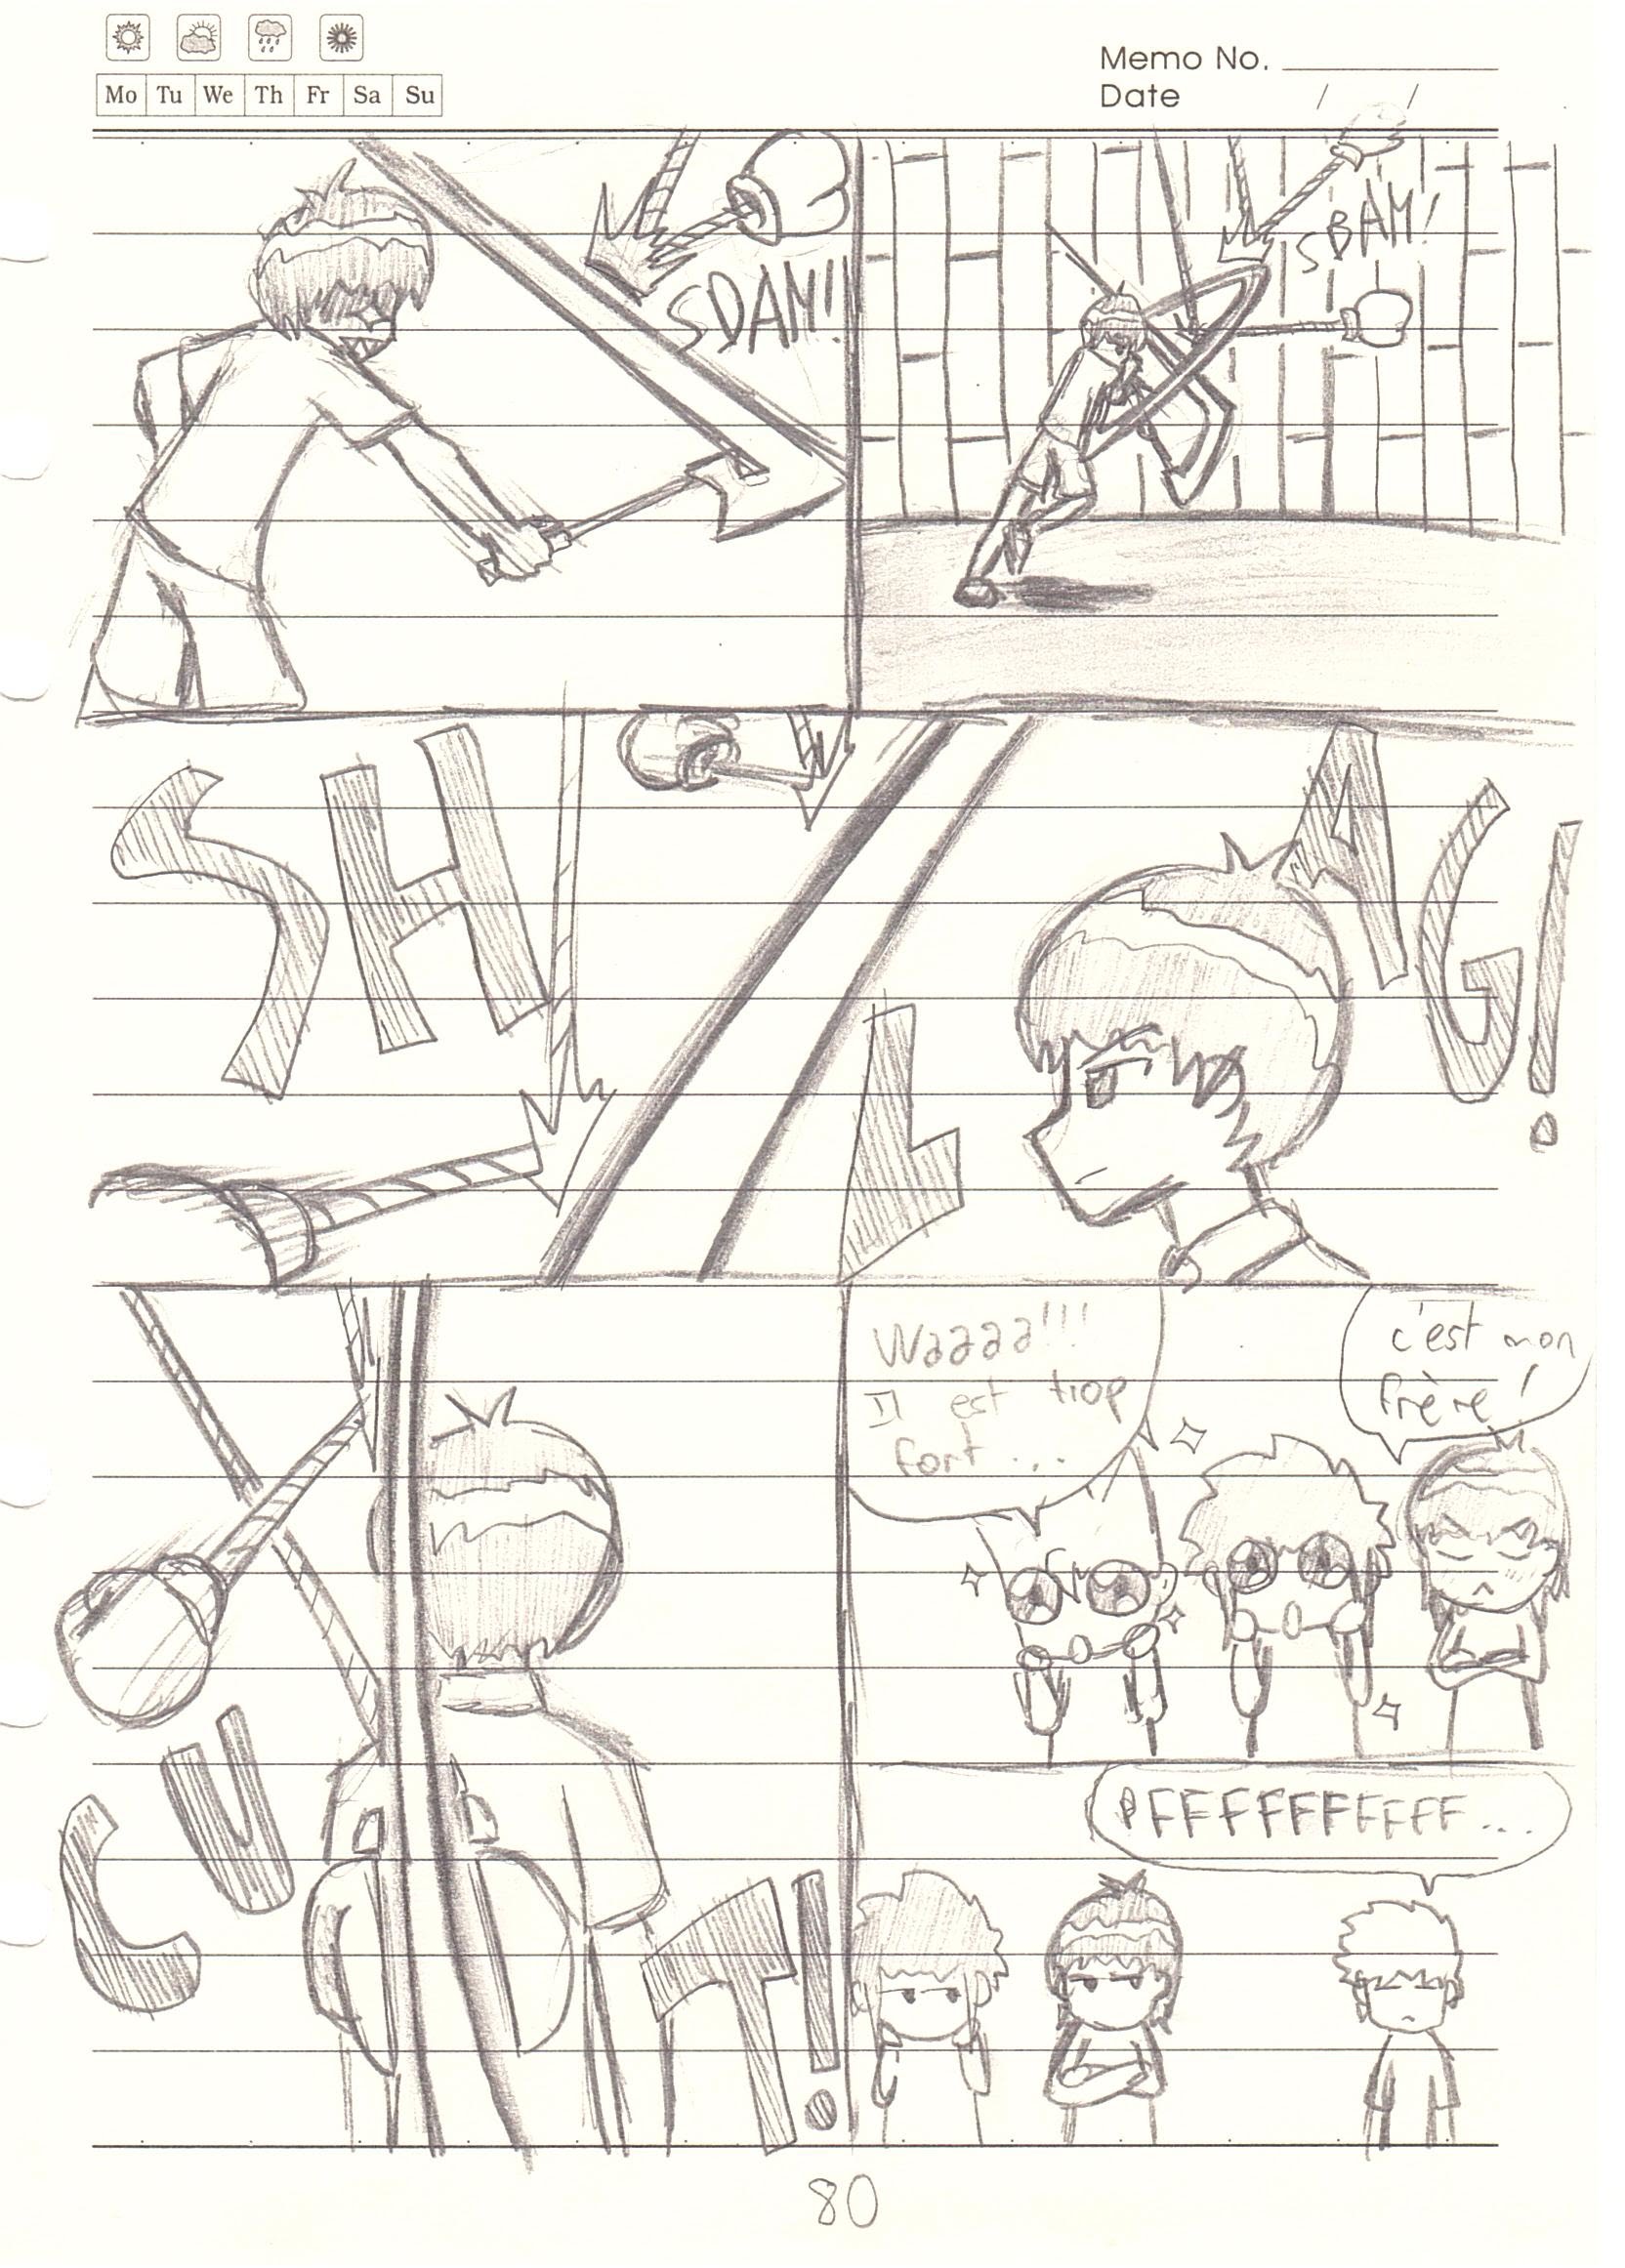 Memo No.
Mo Tu We Th Fr Sa Su
Date / /
SDAM!
SBAM!
SHLAG!
Waaaa!!!
Il est trop
fort...
c'est mon
frère!
CUT!
PFFFFFFFFFF...
80